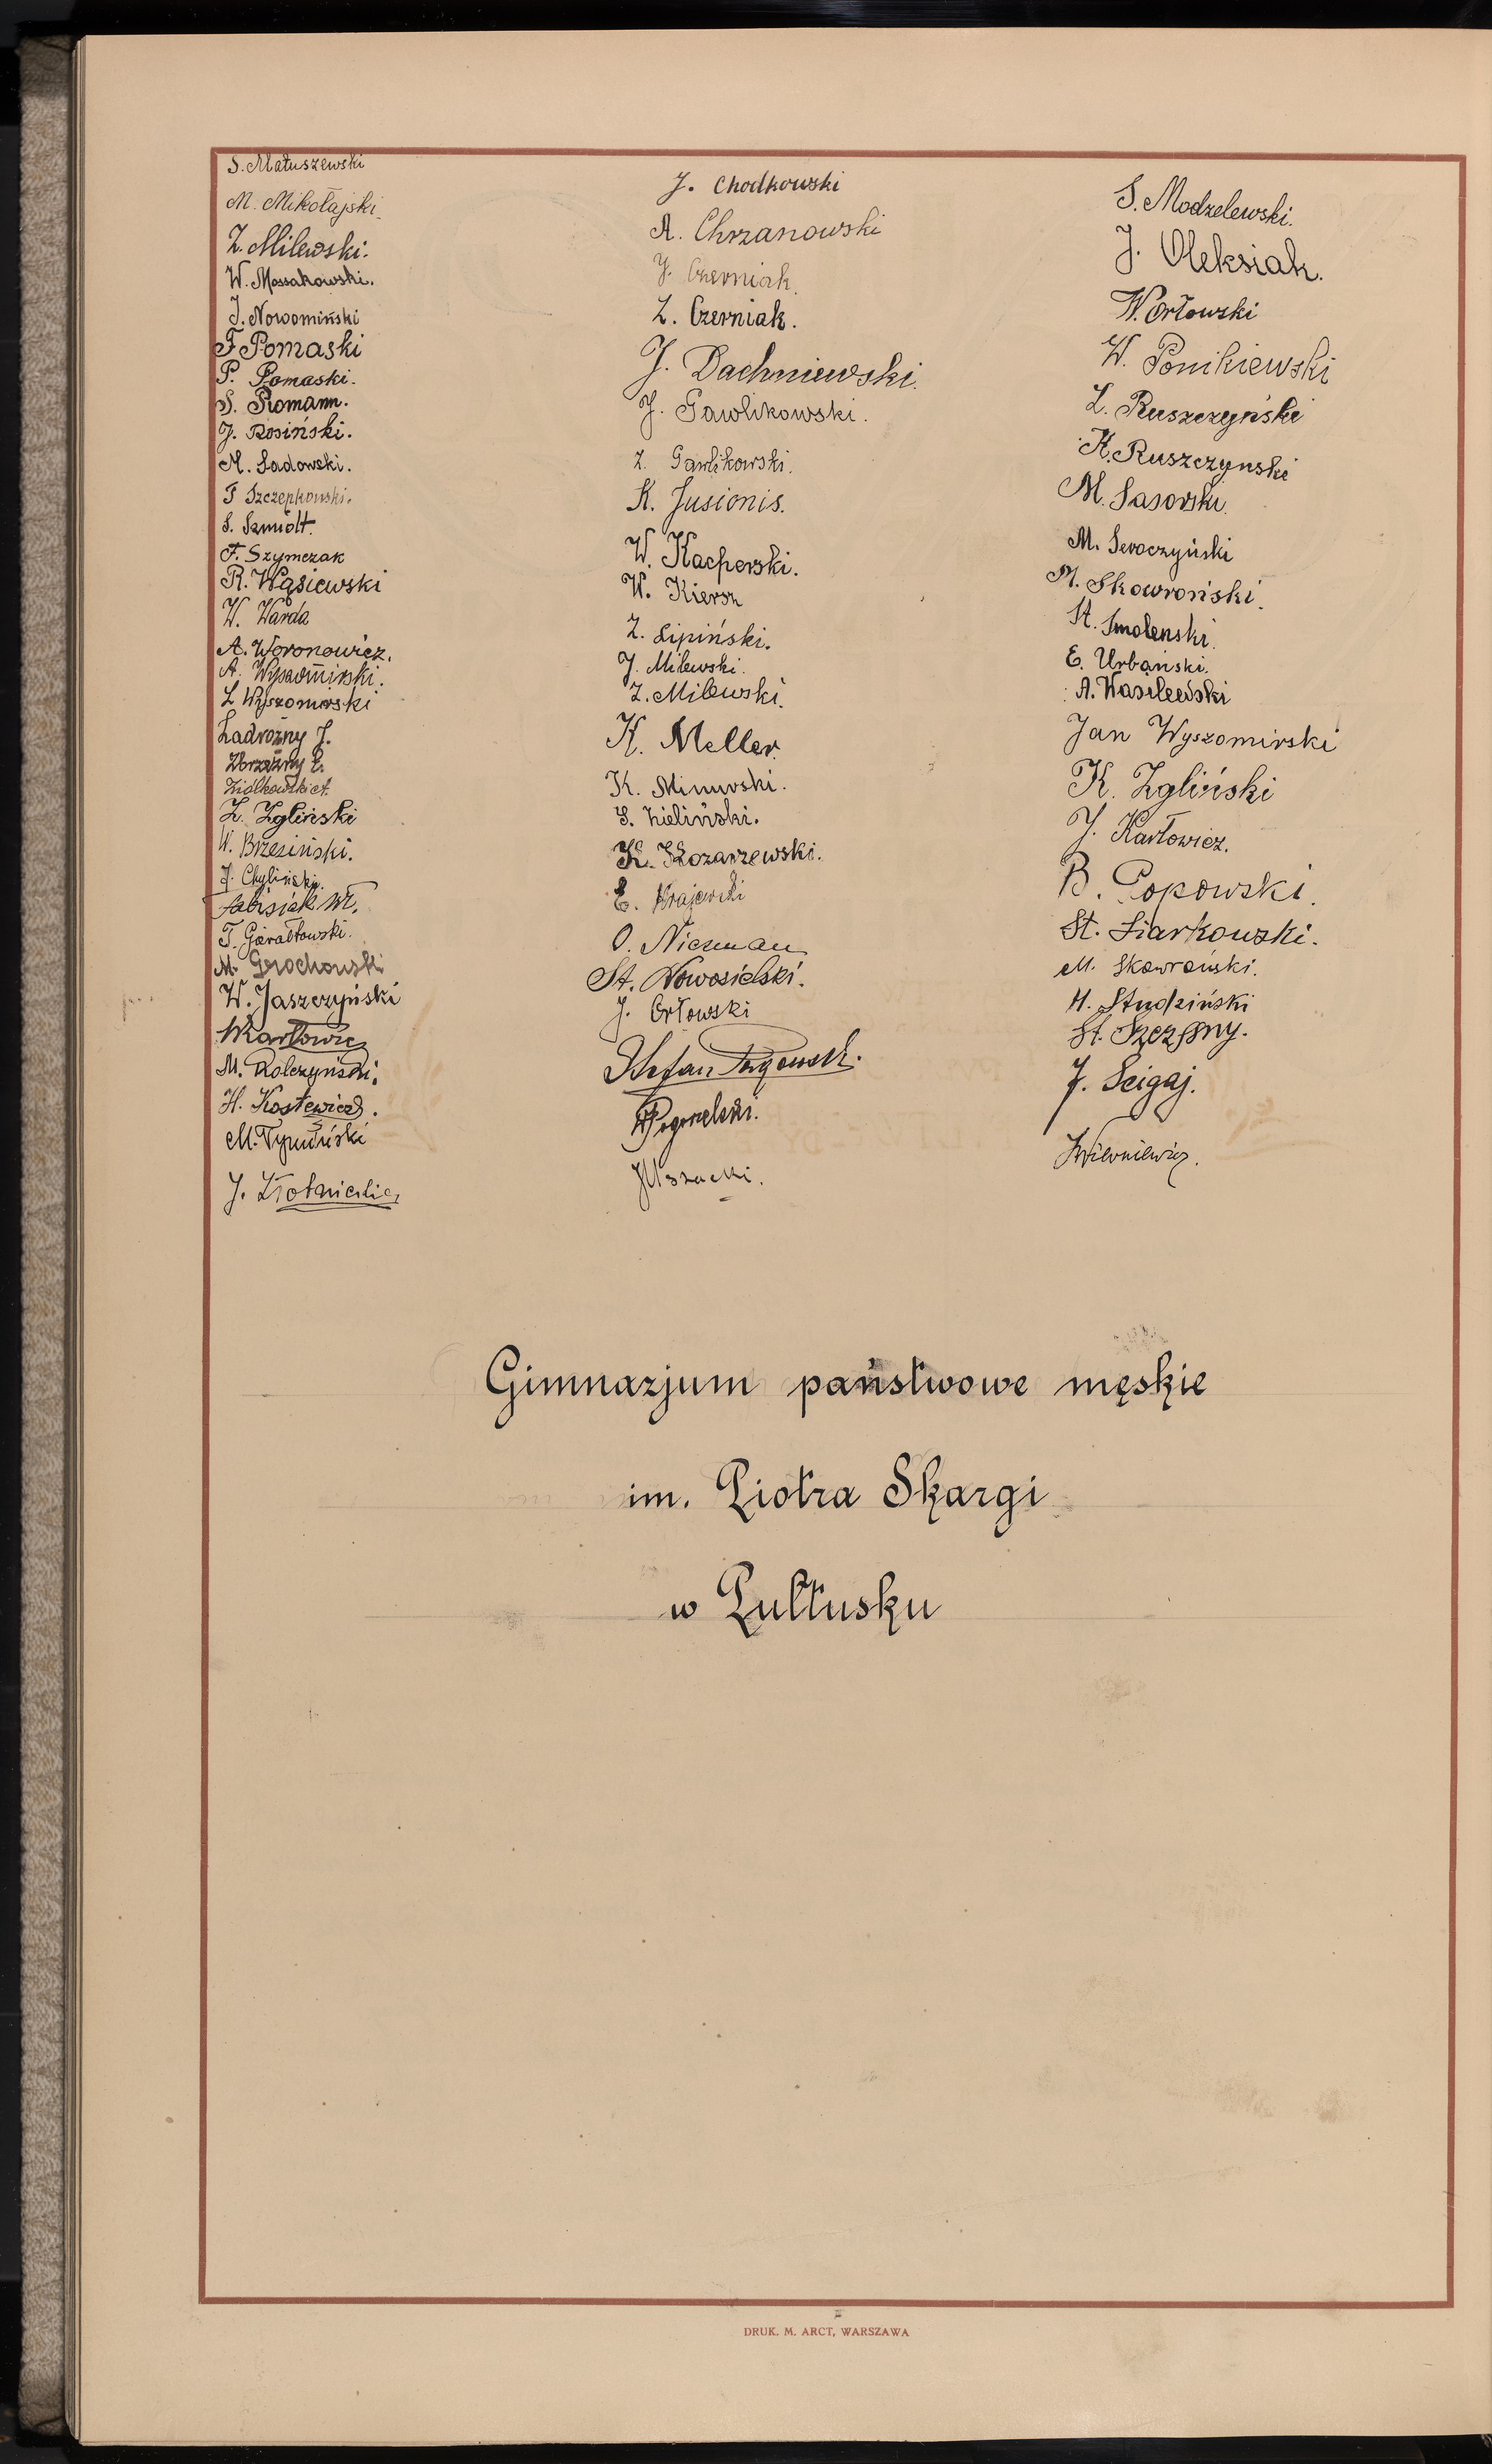 S. Matuszewski
M. Mikołajski
Z. Milewski.
W. Mossakowski.
J. Nowomiński
F Pomaski
P. Pomaski.
S. Romann.
J. Rosiński.
M. Sadowski.
T Szczepkowski.
S. Szmidt.
F. Szymczak
R. Wąsiewski
W. Warda
A. Woronowicz.
A. Wyszomirski.
L Wyszomirski
Zadrożny J.
Zbrzeżny E.
Ziółkowski A.
Z. Zgliński
W. Brzeziński.
J. Chyliński.
Fabisiak Wł.
T. Górałtowski.
M. Grochowski
W. Jaszczyński
WKarłowicz
M. Kolczyński.
H. Kostewicz.
M. Typulński
J. Złotnicki
J. Chodkowski
A. Chrzanowski
J. Czerniak.
Z. Czerniak.
J. Dachniewski.
J. Gawlikowski.
Z. Gawlikowski.
K. Jusionis.
W. Kacperski.
W. Kiersz
Z. Lipiński.
J. Milewski.
Z. Milewski.
K. Meller.
K. Minuwski.
S. Zieliński.
K. Kozarzewski.
E. Krajewski
O. Niezman
St. Nowosielski.
J. Orłowski
Stefan
Pogorzelski.
S. Modzelewski.
J. Oleksiak.
W. Orłowski
W. Ponikiewski
Z. Ruszczyński
K. Ruszczynski
M. Sasorski.
M. Seroczyński
M. Skowroński.
St. Smolenski.
E. Urbański.
A. Wasilewski
Jan Wyszomirski
K. Zgliński
J. Karłowicz.
B. Popowski.
St. Siarkowski.
M. Skowroński.
H. Studziński
St. Szczęsny.
J. Ścigaj.
Gimnazjum państwowe męskie
im. Piotra Skargi
w Pułtusku
DRUK. M. ARCT, WARSZAWA